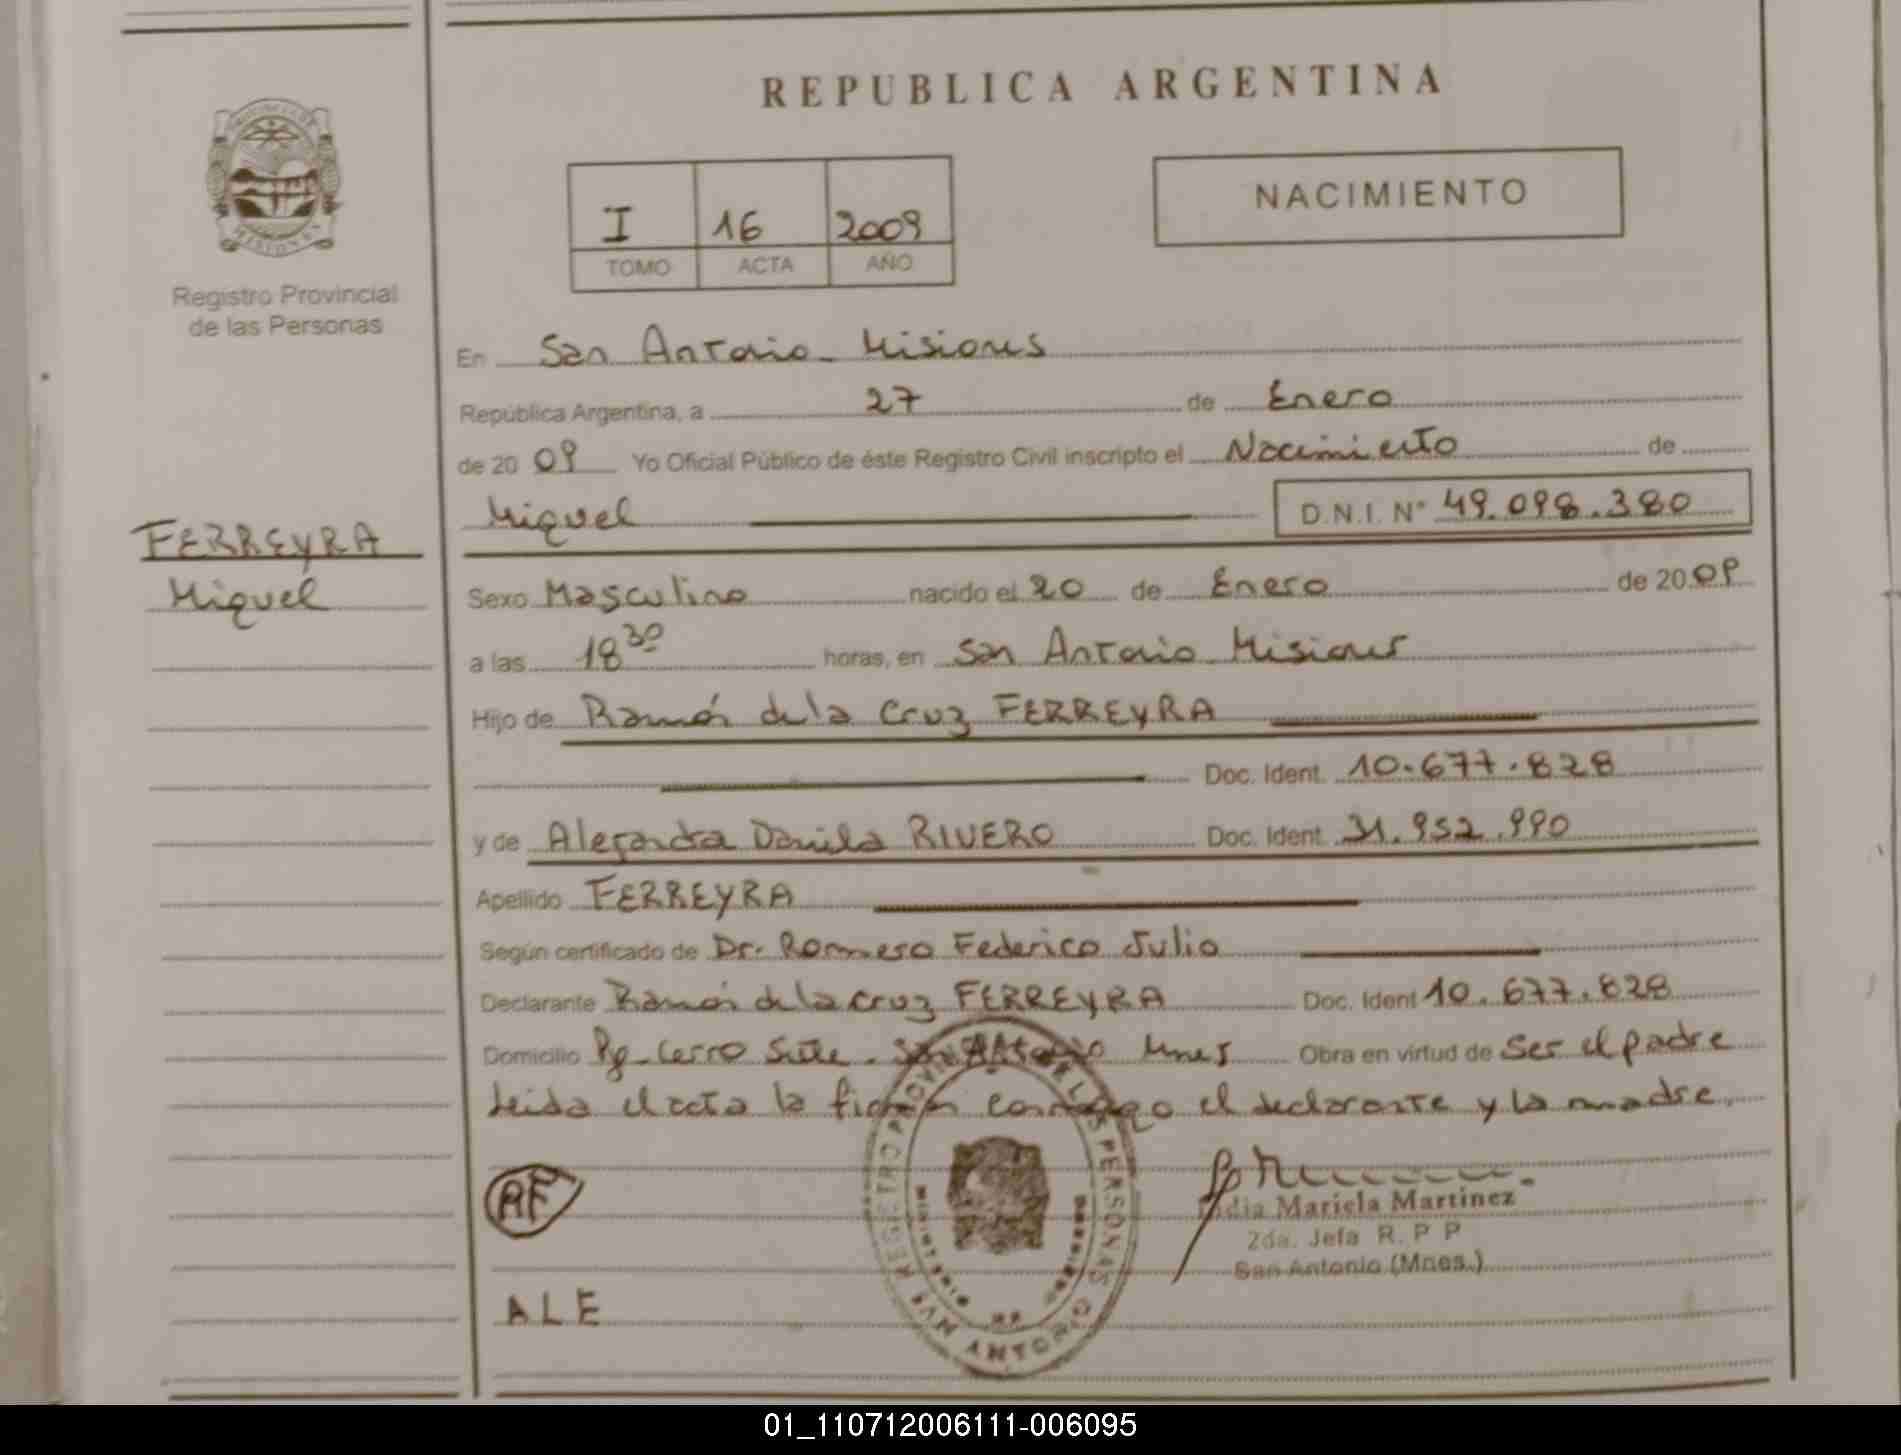 REPUBLICA ARGENTINA
NACIMIENTO
I 16 2009
TOMO ACTA AÑO
MISIONES
Registro Provincial
de las Personas
En San Antonio Misiones
República Argentina, a 27 de Enero
de 20 09 Yo Oficial Público de éste Registro Civil inscripto el Nacimiento de
Miguel D.N.I. N° 49.098.380
FERREYRA
Miguel
Sexo Masculino nacido el 20 de Enero de 20 09
a las 18 30 horas, en San Antonio Misiones
Hijo de Ramón de la Cruz FERREYRA
Doc. Ident. 10.677.828
y de Alejandra Daniela RIVERO Doc. Ident. 31.952.990
Apellido FERREYRA
Según certificado de Dr. Romero Federico Julio
Declarante Ramón de la Cruz FERREYRA Doc. Ident 10.677.828
Domicilio Pje. Cerro Siete. San Antonio Mnes Obra en virtud de ser el padre
Leida el acta la firman conmigo el declarante y la madre.
AF
REGISTRO PROVINCIAL DE LAS PERSONAS
SAN ANTONIO
Mariela Martinez
2da. Jefa R. P P
San Antonio (Mnes.)
ALE
01_110712006111-006095